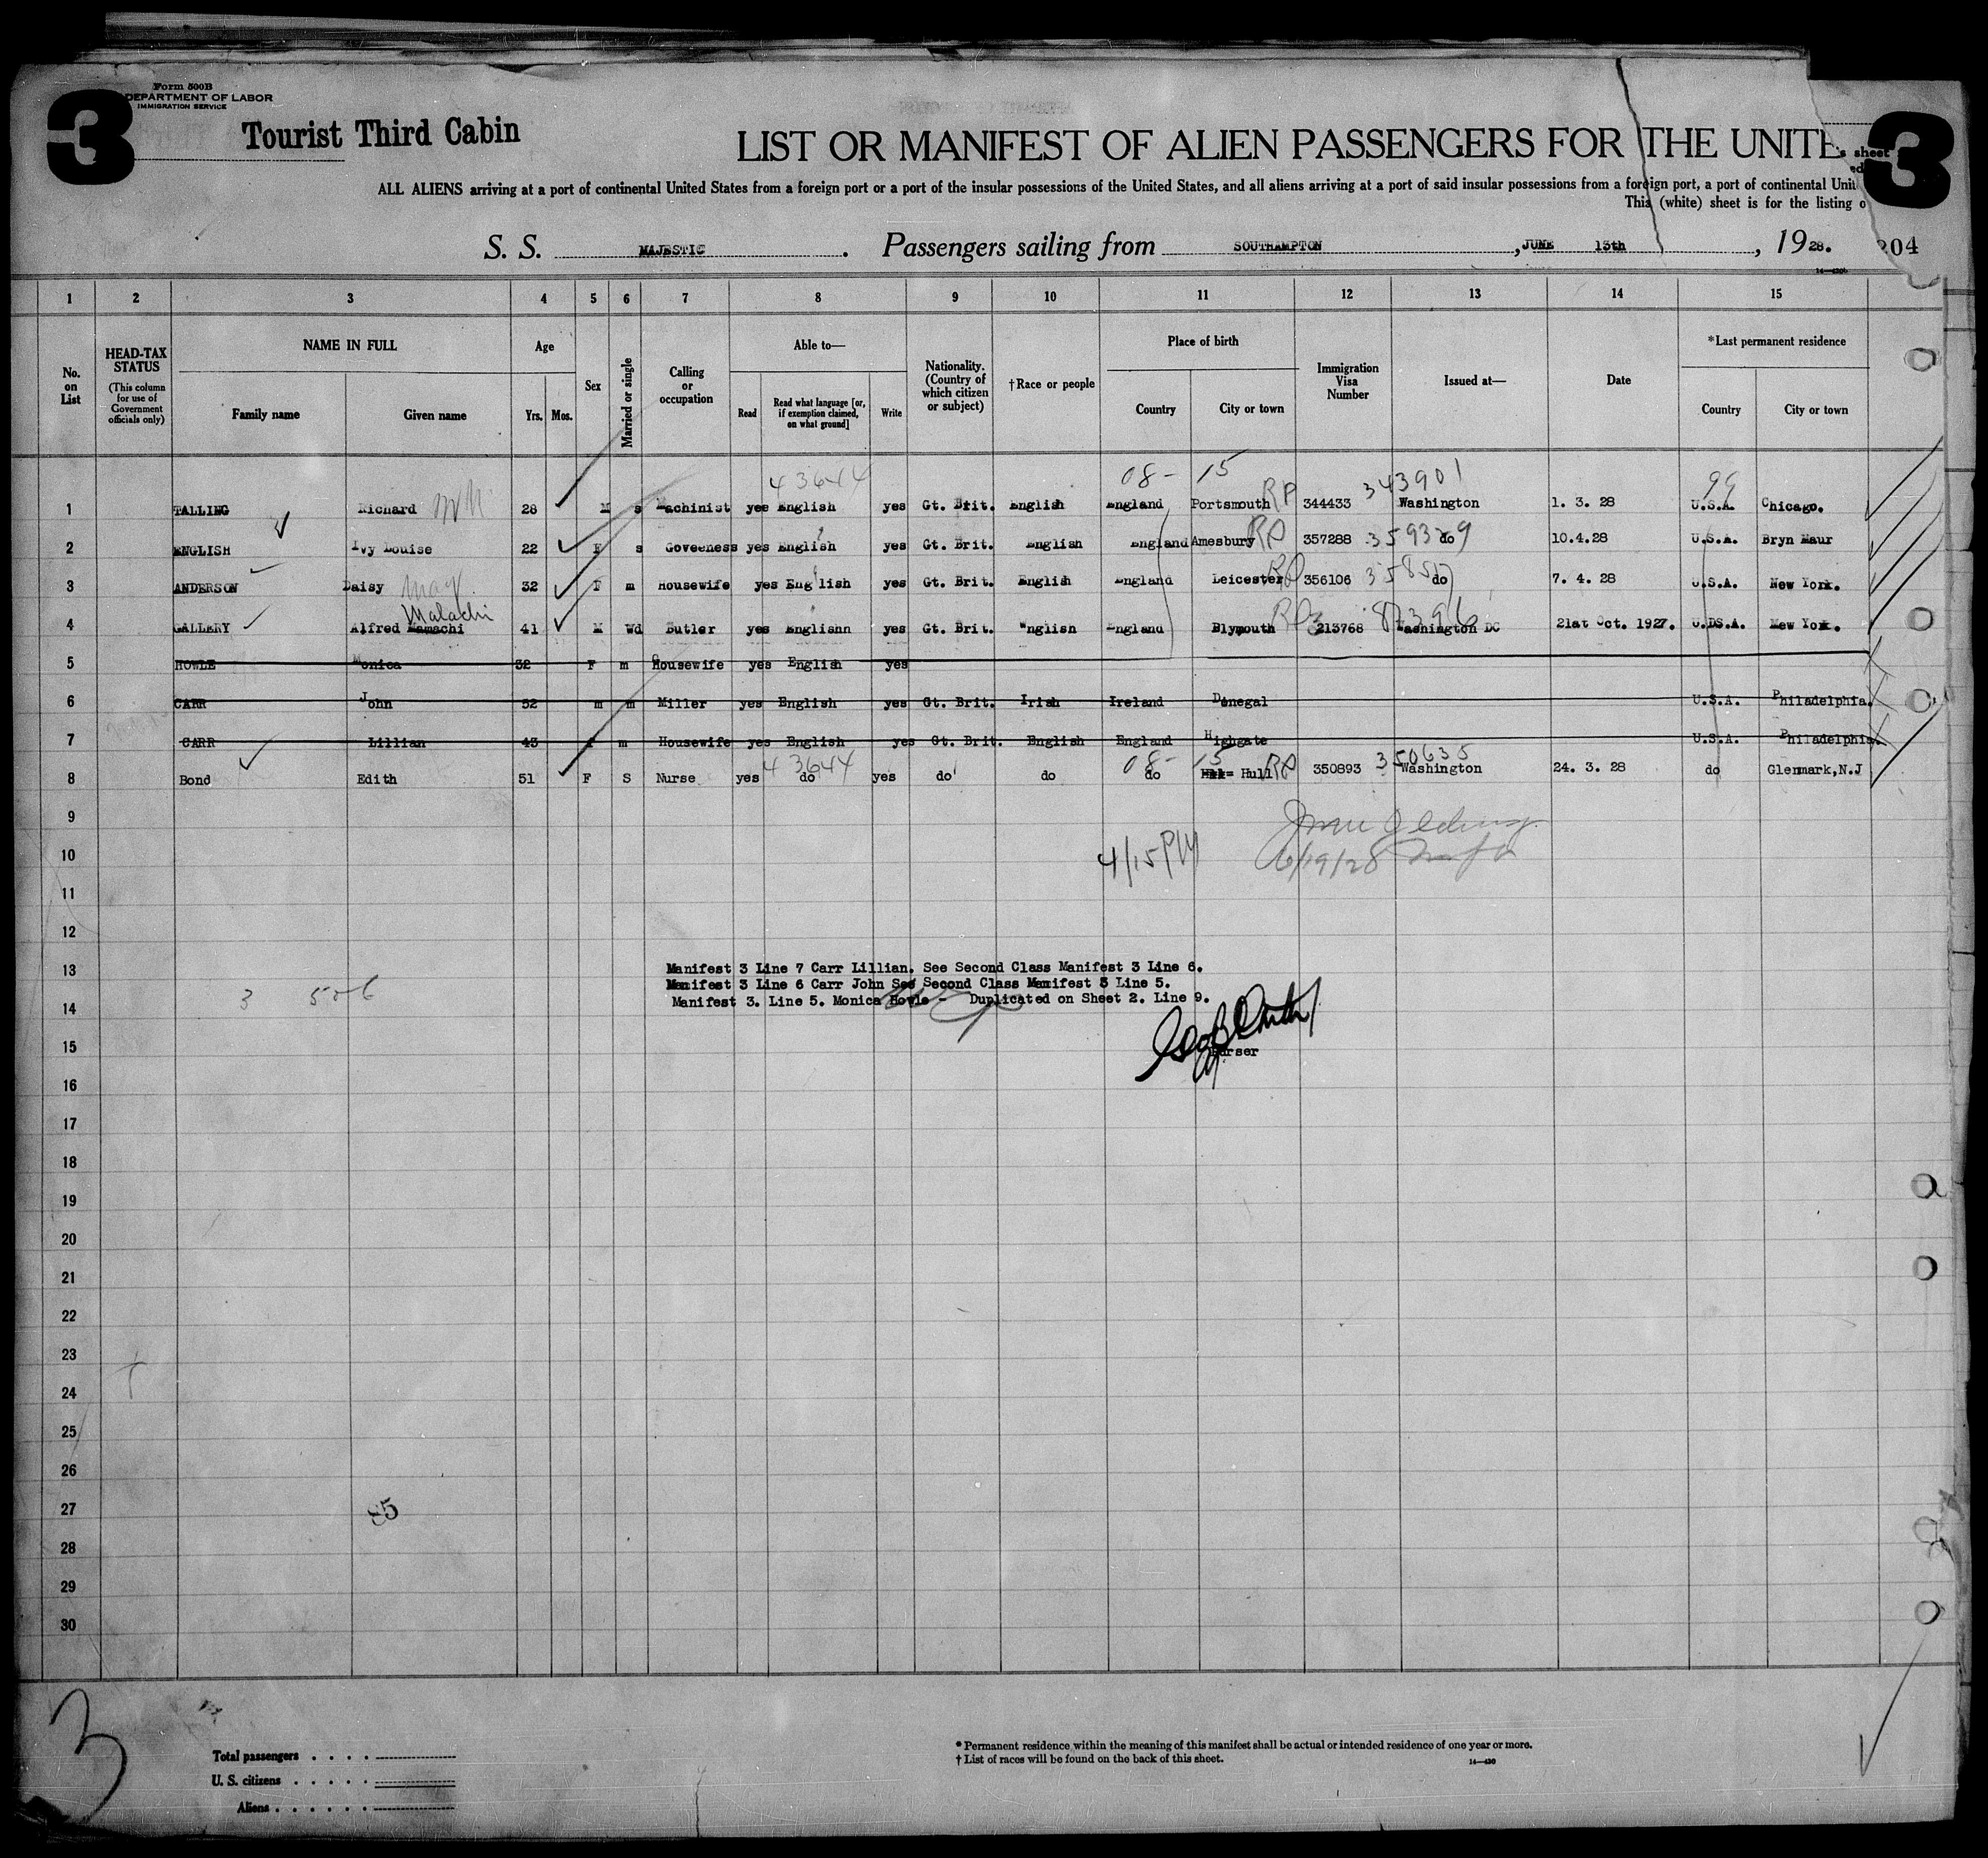 3
Form 500B
DEPARTMENT OF LABOR
IMMIGRATION SERVICE
Tourist Third Cabin
3
LIST OR MANIFEST OF ALIEN PASSENGERS FOR THE UNITE
s sheet
ed
ALL ALIENS arriving at a port of continental United States from a foreign port or a port of the insular possessions of the United States, and all aliens arriving at a port of said insular possessions from a foreign port, a port of continental Unit
This (white) sheet is for the listing o
S. S. MAJESTIC. Passengers sailing from SOUTHAMPTON, JUNE 13th, 1928. 204
14—430b
1 2 3 4 5 6 7 8 9 10 11 12 13 14 15
No. on List
HEAD-TAX STATUS (This column for use of Government officials only)
NAME IN FULL Family name Given name
Age Yrs. Mos.
Sex
Married or single
Calling or occupation
Able to— Read Read what language [or, if exemption claimed, on what ground] Write
Nationality. (Country of which citizen or subject)
†Race or people
Place of birth Country City or town
Immigration Visa Number
Issued at—
Date
*Last permanent residence Country City or town
43644 08- 15 343901 99
1 TALLING Richard 28 M s Machinist yes English yes Gt. Brit. English England Portsmouth RP 344433 Washington 1. 3. 28 U.S.A. Chicago.
2 ENGLISH Ivy Louise 22 F s Goveeness yes English yes Gt. Brit. English England Amesbury RP 357288 359329 do 10.4.28 U.S.A. Bryn Maur
3 ANDERSON Daisy May 32 F m Housewife yes English yes Gt. Brit. English England Leicester RP 356106 do 7. 4. 28 U.S.A. New York.
Malachi
4 GALLERY Alfred Mamachi 41 M Wd Butler yes Englishn yes Gt. Brit. English England Plymouth RP 213768 87396 Washington DC 21at Oct. 1927. U.DS.A. Mew York.
5 HOWLE Monica 32 F m Housewife yes English yes
6 CARR John 52 m m Miller yes English yes Gt. Brit. Irish Ireland Donegal U.S.A. Philadelphia.
7 CARR Lillian 43 f m Housewife yes English yes Gt. Brit. English England Highgate U.S.A. Philadelphia.
43644 08- 15 350635
8 Bond Edith 51 F S Nurse yes do yes do do do Hull RP 350893 Washington 24. 3. 28 do Glenmark,N.J
9
10 4/15 6/19/28
11
12
13 Manifest 3 Line 7 Carr Lillian. See Second Class Manifest 3 Line 6.
Manifest 3 Line 6 Carr John See Second Class Manifest 3 Line 5.
3 526
14 Manifest 3. Line 5. Monica Howle - Duplicated on Sheet 2. Line 9.
15 Purser
16
17
18
19
20
21
22
23
24
25
26
27 85
28
29
30
3
Total passengers . . . .
U. S. citizens . . . . .
Aliens . . . . . .
* Permanent residence within the meaning of this manifest shall be actual or intended residence of one year or more.
† List of races will be found on the back of this sheet.
14—430